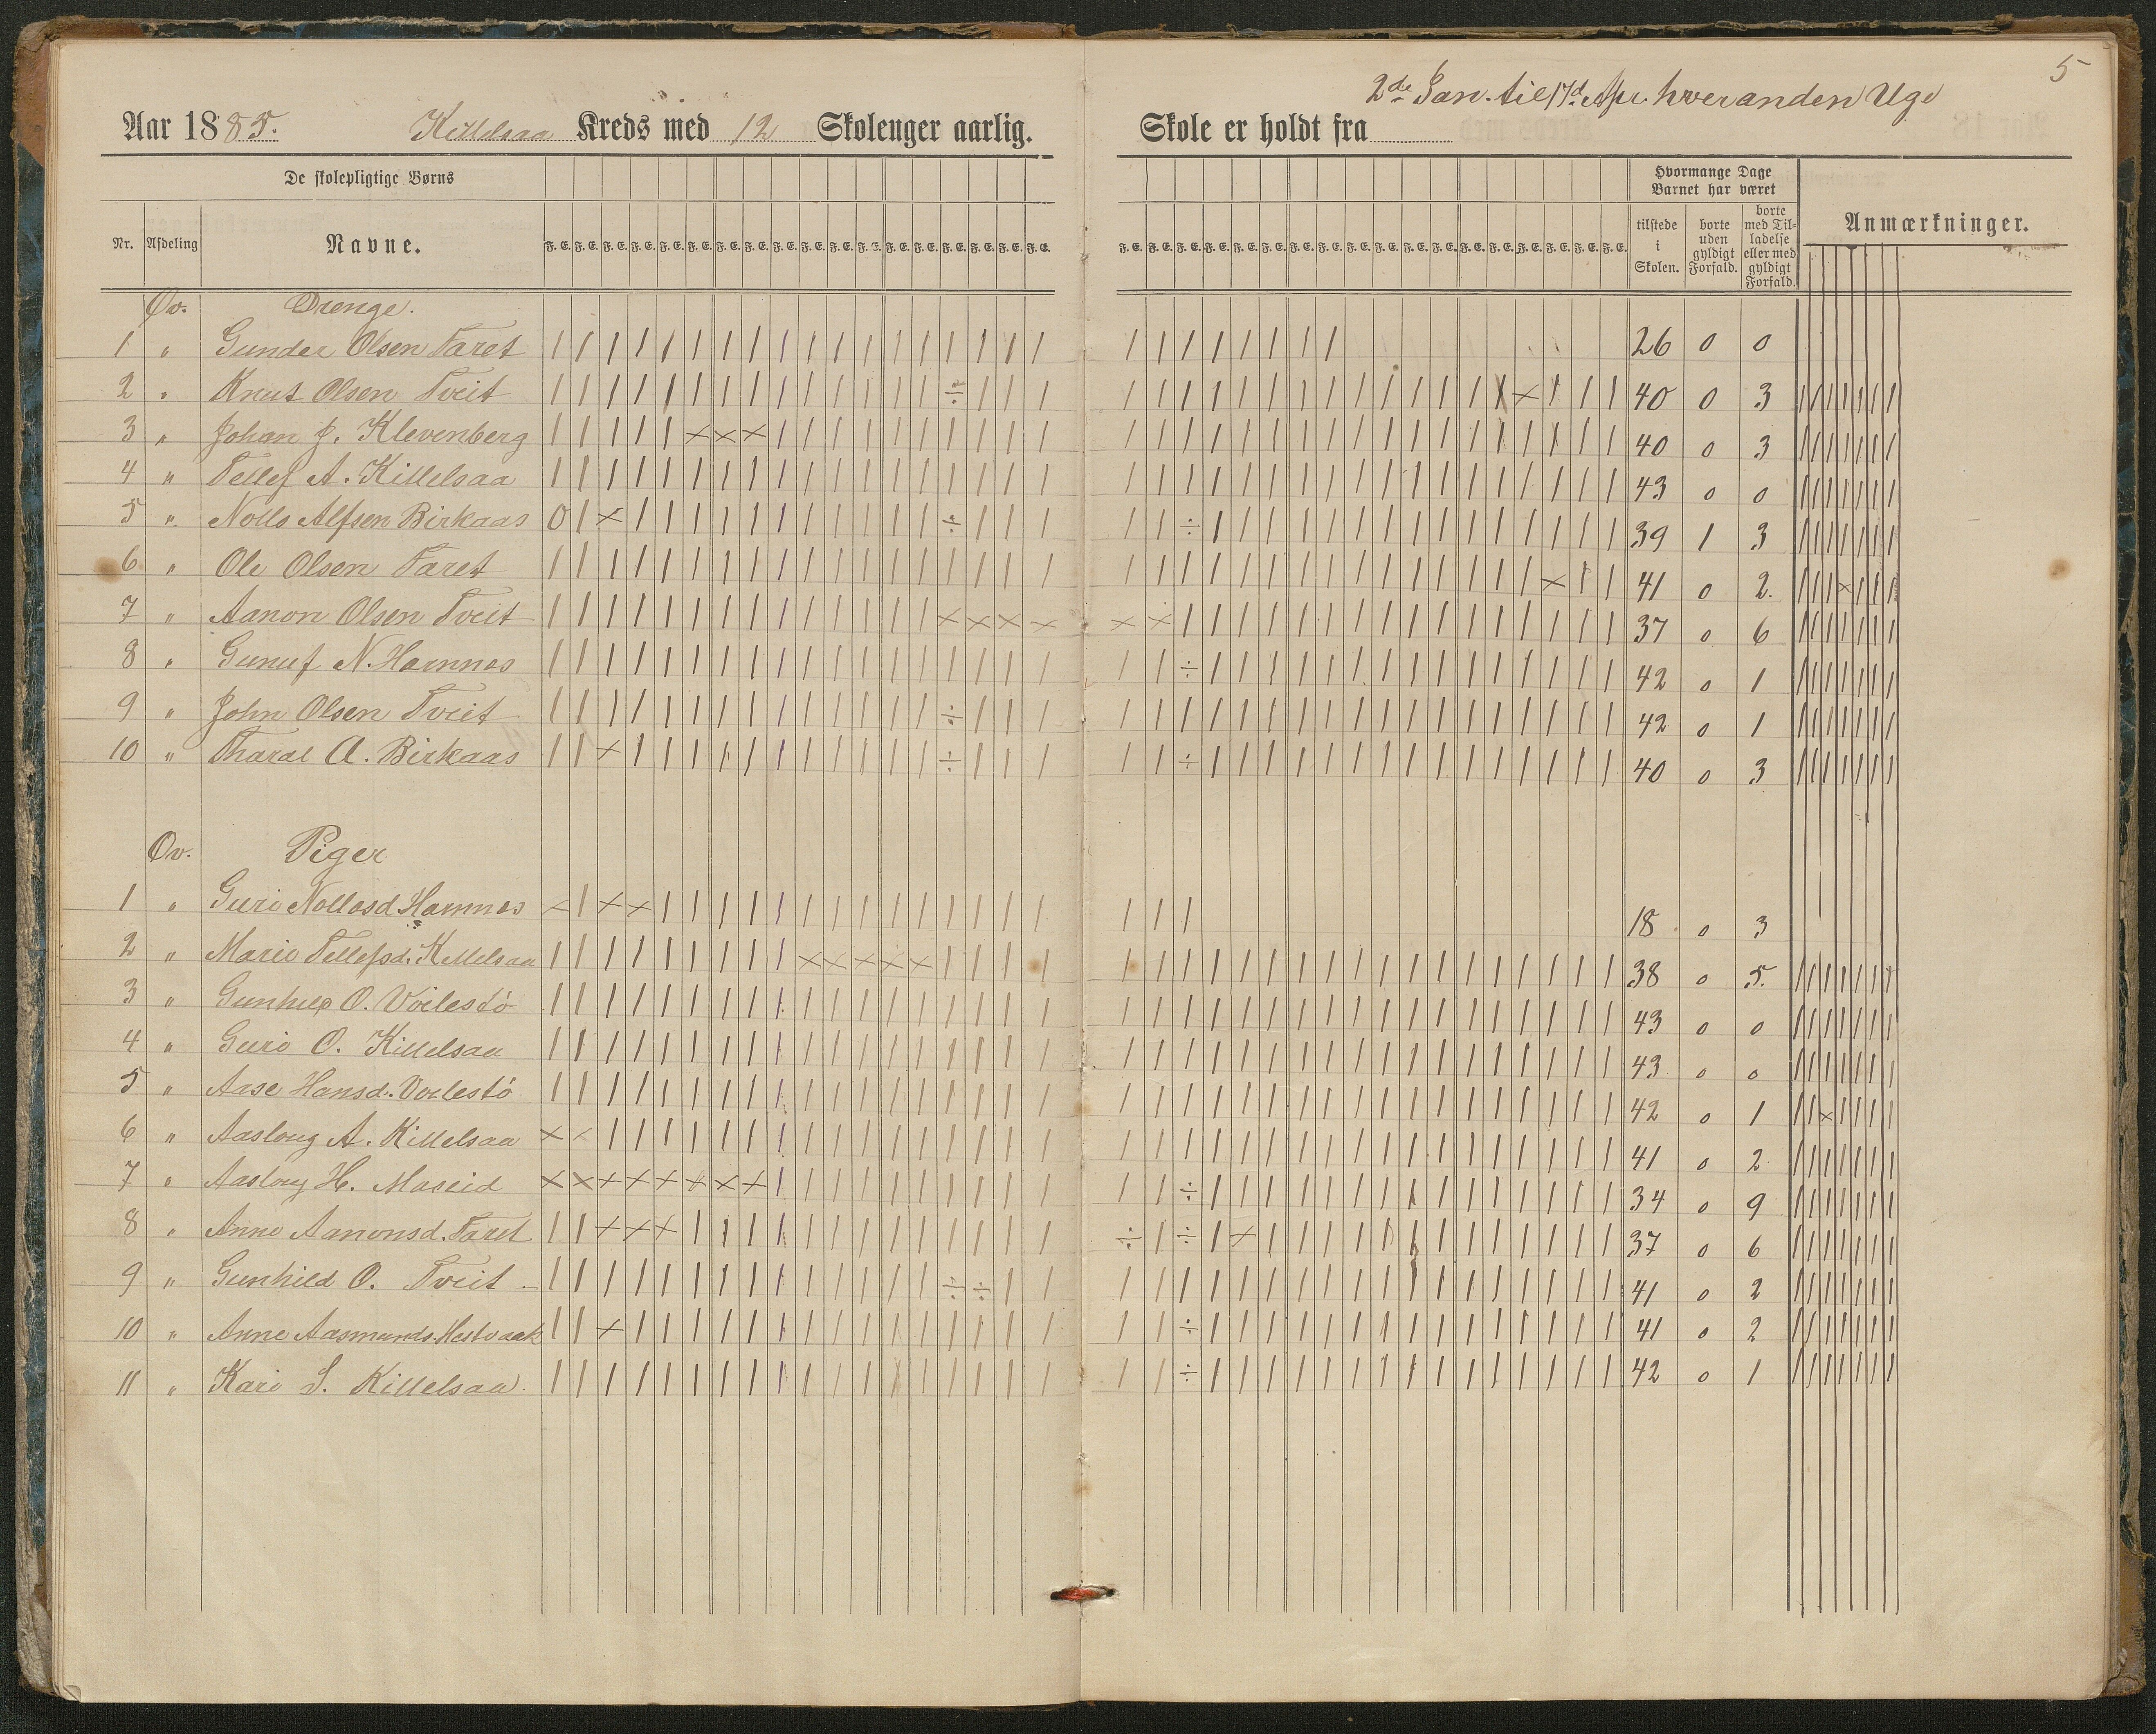 5
2de Jan. til 17d Apr. hveranden Uge
Aar 1885. Killelsaa Kreds med 12 Skoleuger aarlig. Skole er holdt fra
De skolepligtige Børns
Hvormange Dage Barnet har været
Nr. Afdeling Navne. F. E. F. E. F. E. F. E. F. E. F. E. F. E. F. E. F. E. F. E. F. E. F. E. F. E. F. E. F. E. F. E. F. E. F. E. F. E. F. E. F. E. F. E. F. E. F. E. F. E. F. E. F. E. F. E. F. E. F. E. F. E. F. E. F. E. F. E. F. E. F. E.
tilstede i Skolen. borte uden gyldigt Forfald. borte med Tilladelse eller med gyldigt Forfald. Anmærkninger.
Øv. Drenge.
1 " Gunder Olsen Taret 26 0 0
2 " Knut Olsen Tveit 40 0 3
3 " Johan J. Klevenberg 40 0 3
4 " Tellef A. Killelsaa 43 0 0
5 " Nolls Alfsen Birkaas 39 1 3
6 " Ole Olsen Taret 41 0 2.
7 " Aanon Olsen Tveit 37 0 6
8 " Gunuf N. Hamnes 42 0 1
9 " John Olsen Tveit 42 0 1
10 " Tharal A. Birkaas 40 0 3
Øv. Piger
1 " Guri Nollosd Hamnes 18 0 3
2 " Marie Tellefsd. Killelsaa 38 0 5.
3 " Gunhild O. Voilestö 43 0 0
4 " Guro O. Killelsaa 43 0 0
5 " Aase Hansd. Voilestö 42 0 1
6 " Aasloug A. Killelsaa 41 0 2
7 " Aasloug H. Maseid 34 0 9
8 " Anne Aanonsd. Taret 37 0 6
9 " Gunhild O. Tveit 41 0 2
10 " Anne Aasmunds. 41 0 2
11 " Kari S. Killelsaa. 42 0 1